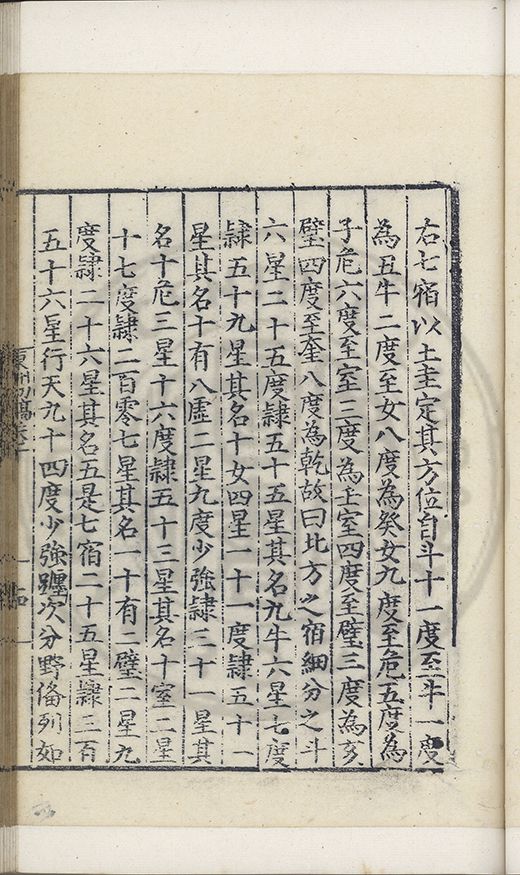 右七宿以土圭定其方位自斗十一度至牛一度
為丑牛二度至女八度為癸女九度至危五度為
子危六度至室三度為壬室四度至壁三度為亥
壁四度至奎八度為乾故曰北方之宿細分之斗
六星二十五度隷五十五星其名九牛六星七度
隷五十九星其名十女四星一十一度隷五十一
星其名十有八虛二星九度少強隷三十一星其
名十危三星十六度隷五十三星其名十室二星
十七度隷二百零七星其名一十有二壁二星九
度隷二十六星其名五是七宿二十五星隷二百
五十六星行天九十四度少強躔次分野俻列如